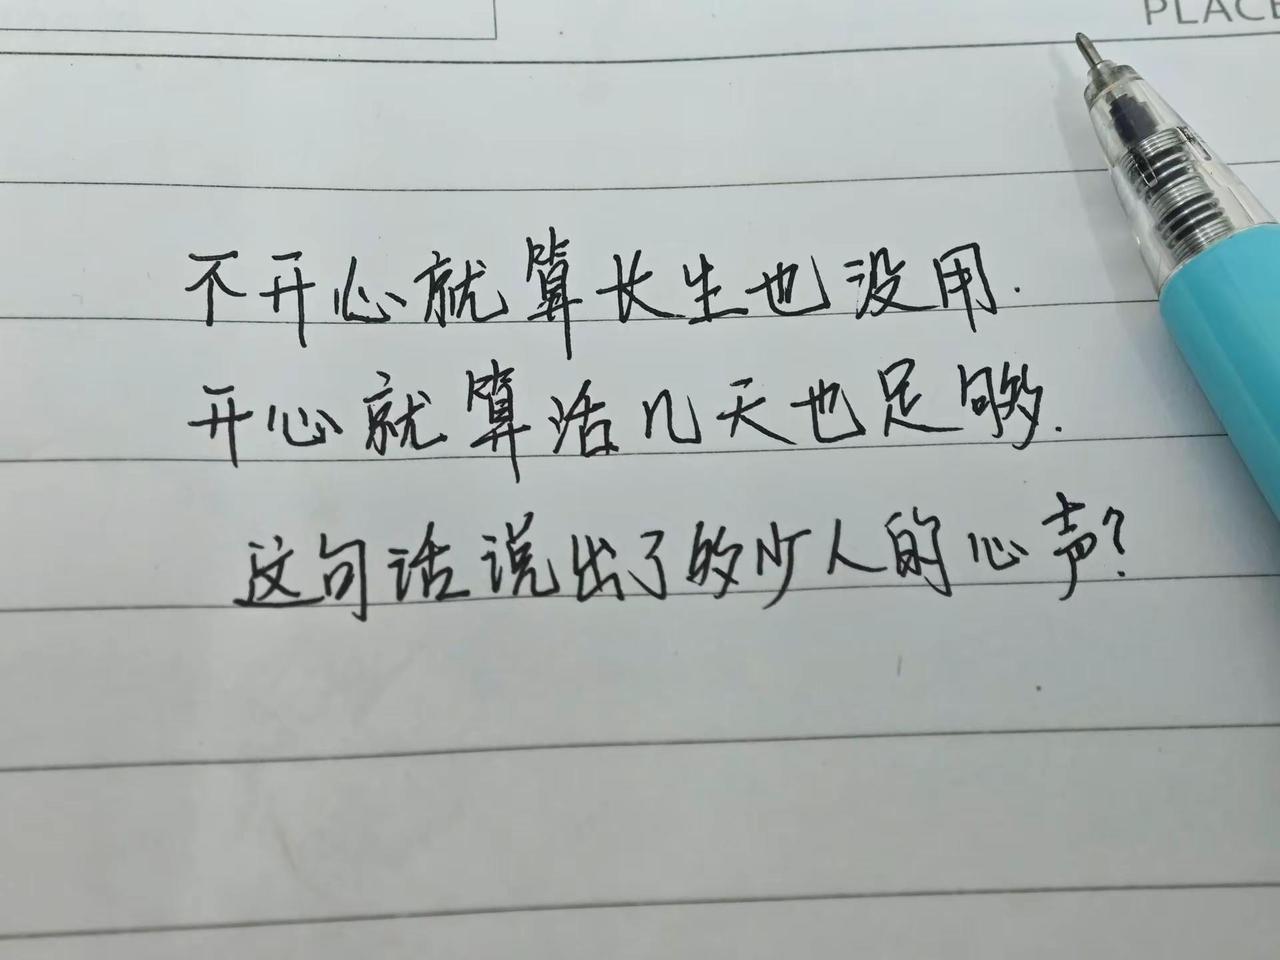 PLACE
不开心就算长生也没用.
开心就算活几天也足够.
这句话说出了多少人的心声?